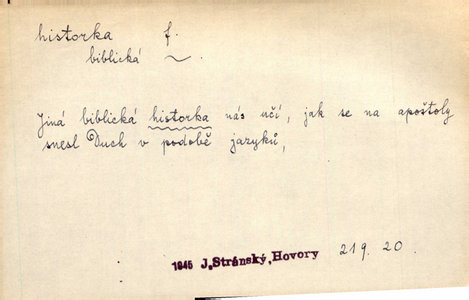 historka f.
biblická ~.
Jiná biblická historka nás učí, jak se na apoštoly
snesl Duch v podobě jazyků,
1945 J.Stránský,Hovory 219. 20.